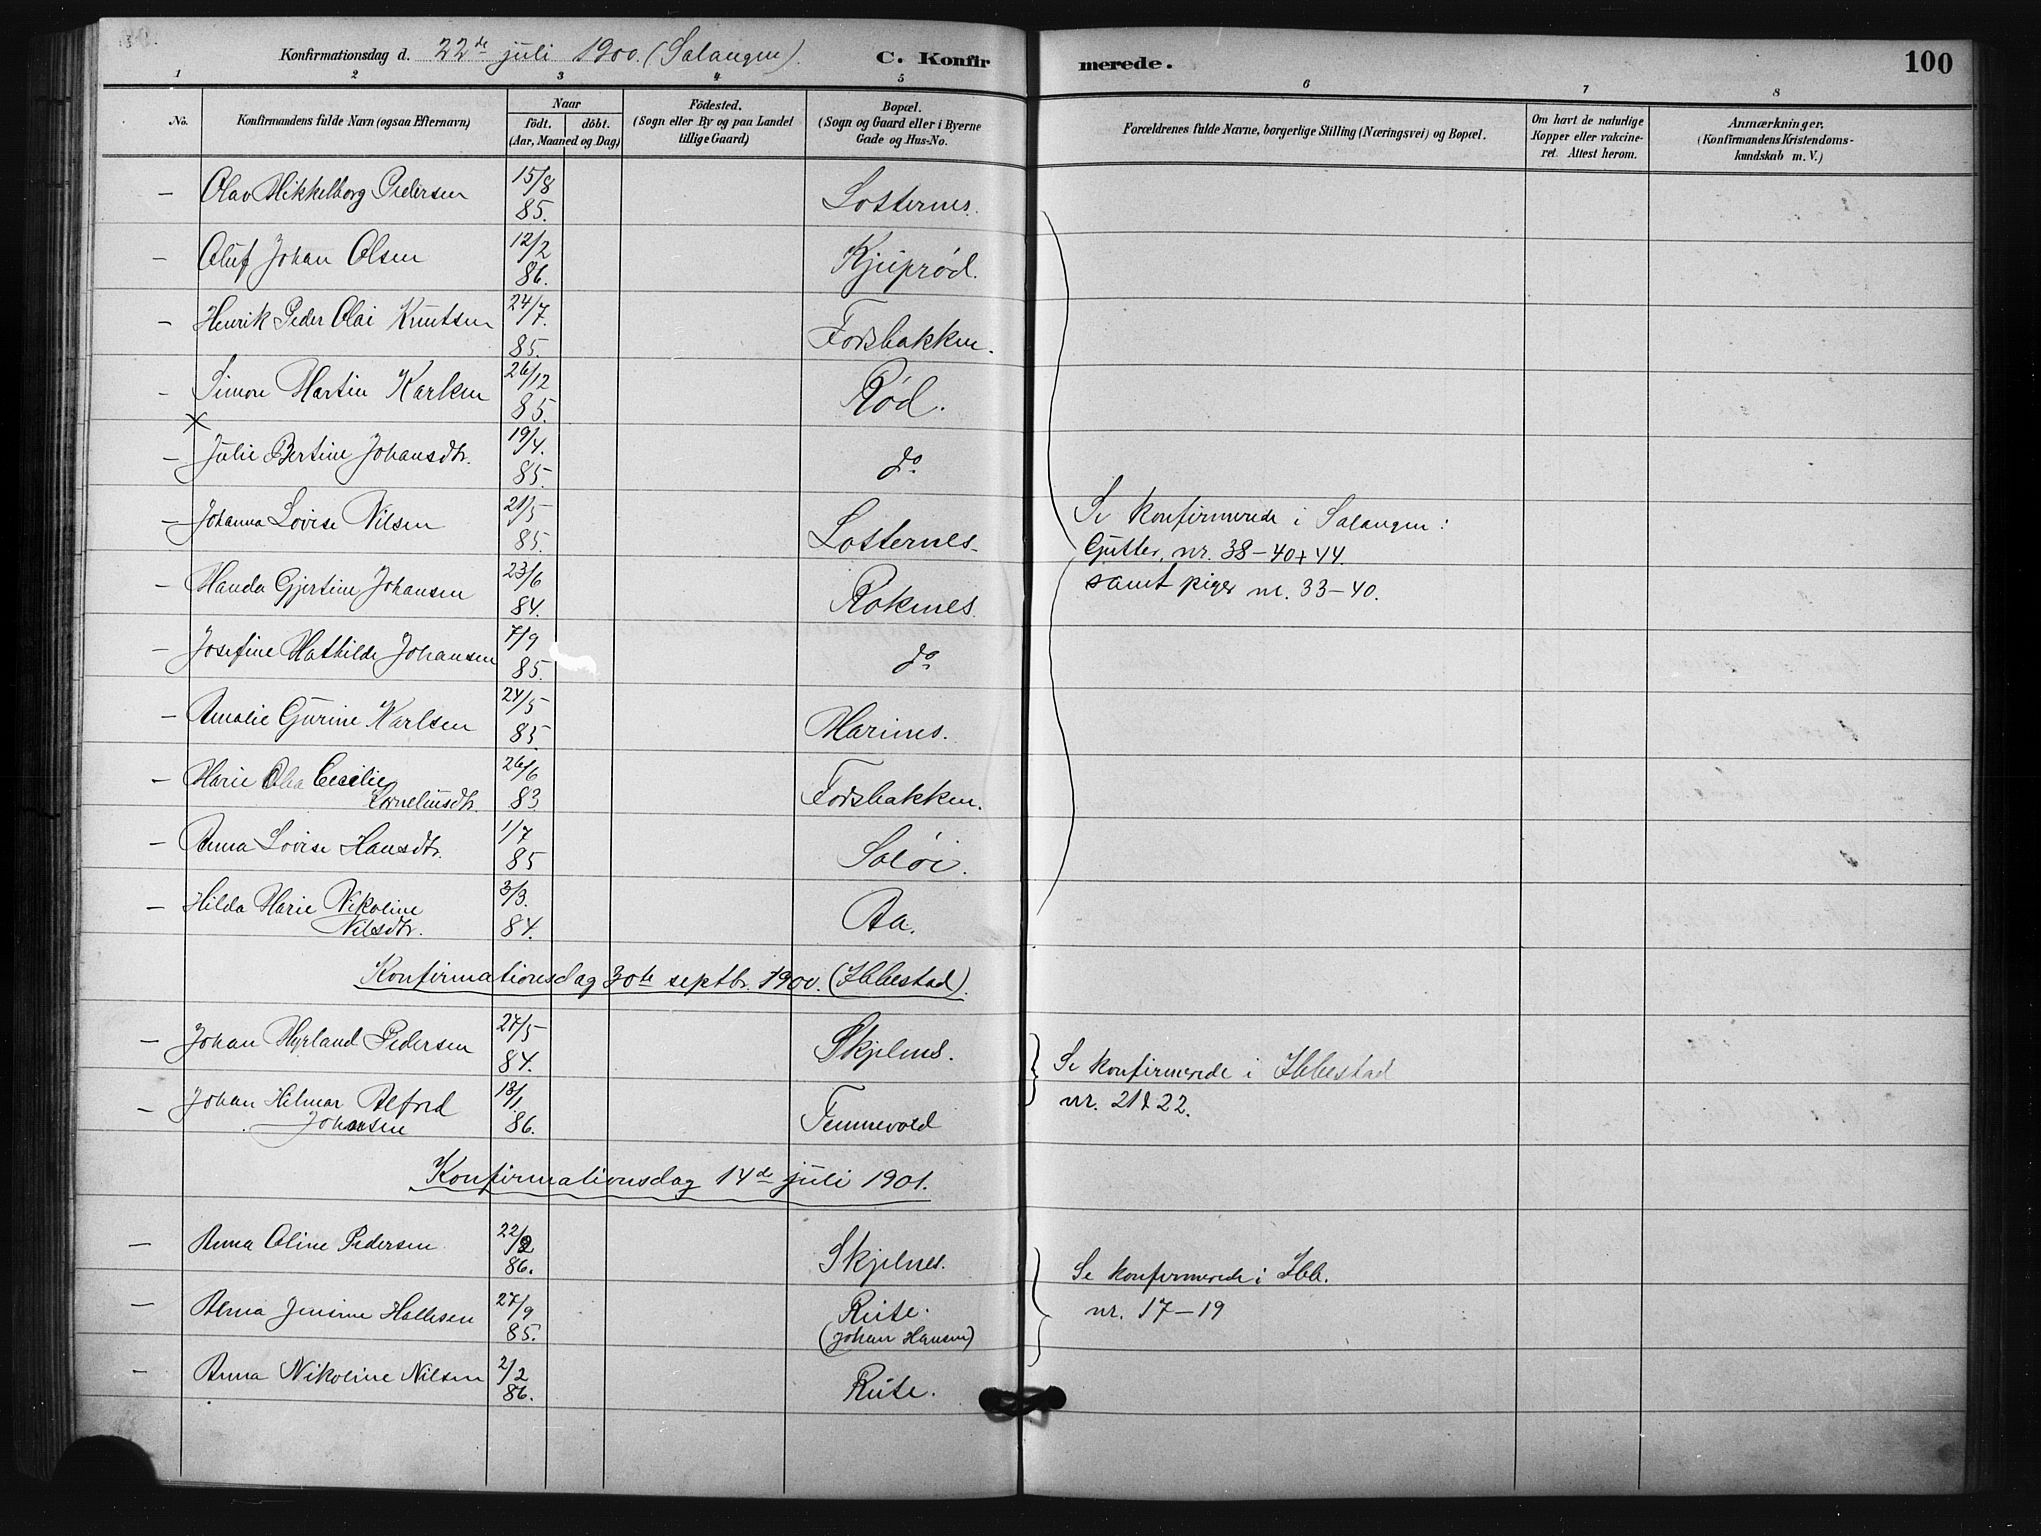 Konfirmationsdag d. 22de juli 1900. (Salangen). C. Konfirmerede. 100
1 2 3 4 5 6 7 8
No.
Konfirmandens fulde Navn (ogsaa Efternavn)
Naar
födt. döbt.
(Aar, Maaned og Dag)
Födested.
(Sogn eller By og paa Landet
tillige Gaard)
Bopæl.
(Sogn og Gaard eller i Byerne
Gade og Hus-No.
Forældrenes fulde Navne, borgerlige Stilling (Næringsvei) og Bopæl.
Om havt de naturlige
Kopper eller vakcine-
ret. Attest herom.
Anmærkninger.
(Konfirmandens Kristendoms-
kundskab m. V.)
— Olav Mikkelborg Pedersen 15/8 85. Lotternes.
— Oluf Johan Olsen 12/2 86. Kjuprød.
— Henrik Peder Olai Knutsen 24/7. 85. Forsbakken.
— Simon Martin Karlsen 26/12 85. Rød.
×
— Julie Bertine Johansdtr. 19/4. 85. do.
— Johanna Lovise Nilsen 21/5 85. Lotternes.
Se konfirmerede i Salangen:
Gutter, nr. 38–40+44.
samt piger nr. 33–40.
— Handa Gjertine Johansen 23/6 84. Roknes
— Josefine Mathilde Johansen 7/9 85. do.
— Amalie Gurine Karlsen 24/5 85. Marines.
— Marie Olea Cecilie
Korneliusdtr. 26/6 83 Forsbakken.
— Anna Lovise Hansdtr. 1/7 85 Saløi.
— Hilda Marie Nikoline
Nilsdtr. 3/3. 84. Aa.
Konfirmationsdag 30te septbr. 1900. (Ibbestad).
— Johan Hyrland Pedersen 27/5 84. Skjelnes.
Se konfirmerede i Ibbestad
nr. 21 & 22.
— Johan Hilmar Alfred
Johansen 13/1. 86. Tennevold
Konfirmationsdag 14de juli 1901.
— Anna Oline Pedersen 22/2 86. Skjelnes.
Se konfirmerede i Ibb.
nr. 17–19
— Alma Jensine Hallesen 27/9 85. Rute.
(Johan Hansen)
— Anna Nikoline Nilsen 2/2 86. Rute.